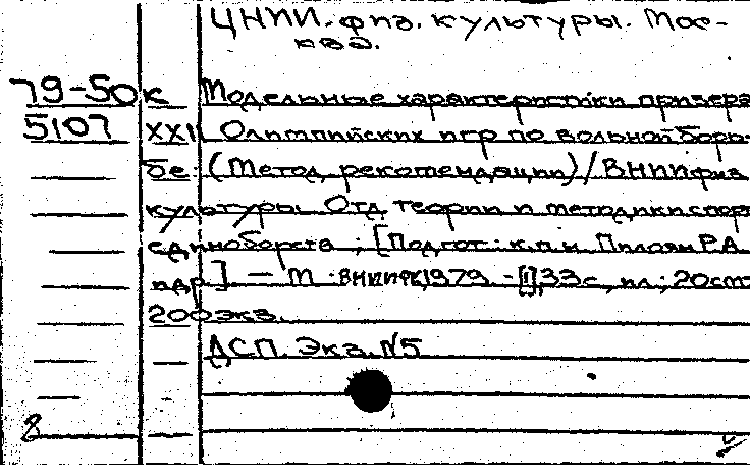 ЦНИИ физ. культуры. Мос-
ква.
79-50к Модельные характеристики призера
5107 XXII Олимпийских игр по вольной борь-
бе: (Метод. рекомендации) / ВНИИ физ.
культуры. Отд. теории и методики спорт.
единоборств ; [Подгот.: к.п.н. Пилоян Р.А.
и др.]. — М. : ВНИИФК, 1979. - [1], 33 с., ил.; 20 см
200 экз.
ДСП. Экз. №5
8